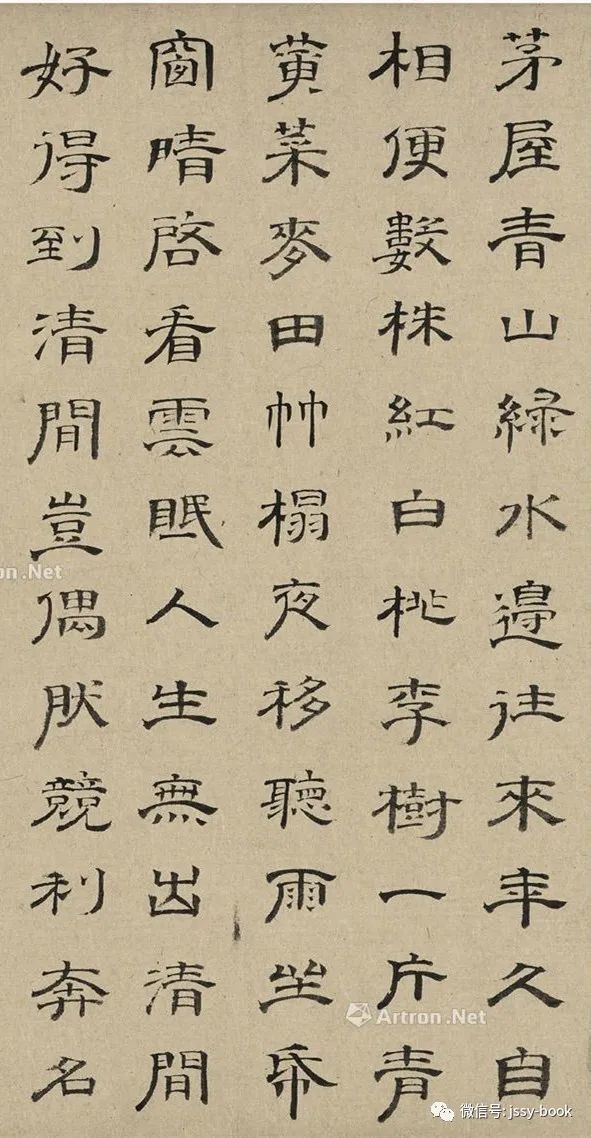 茅屋青山緑水邊往來年久自
相便數株紅白桃李樹一片青
黃菜麥田竹榻夜移聽雨坐帋
窗晴啓看雲眠人生無出清閒
好得到清閒豈偶然競利奔名
tron.Net
Artron.Net
微信号: jssy-book